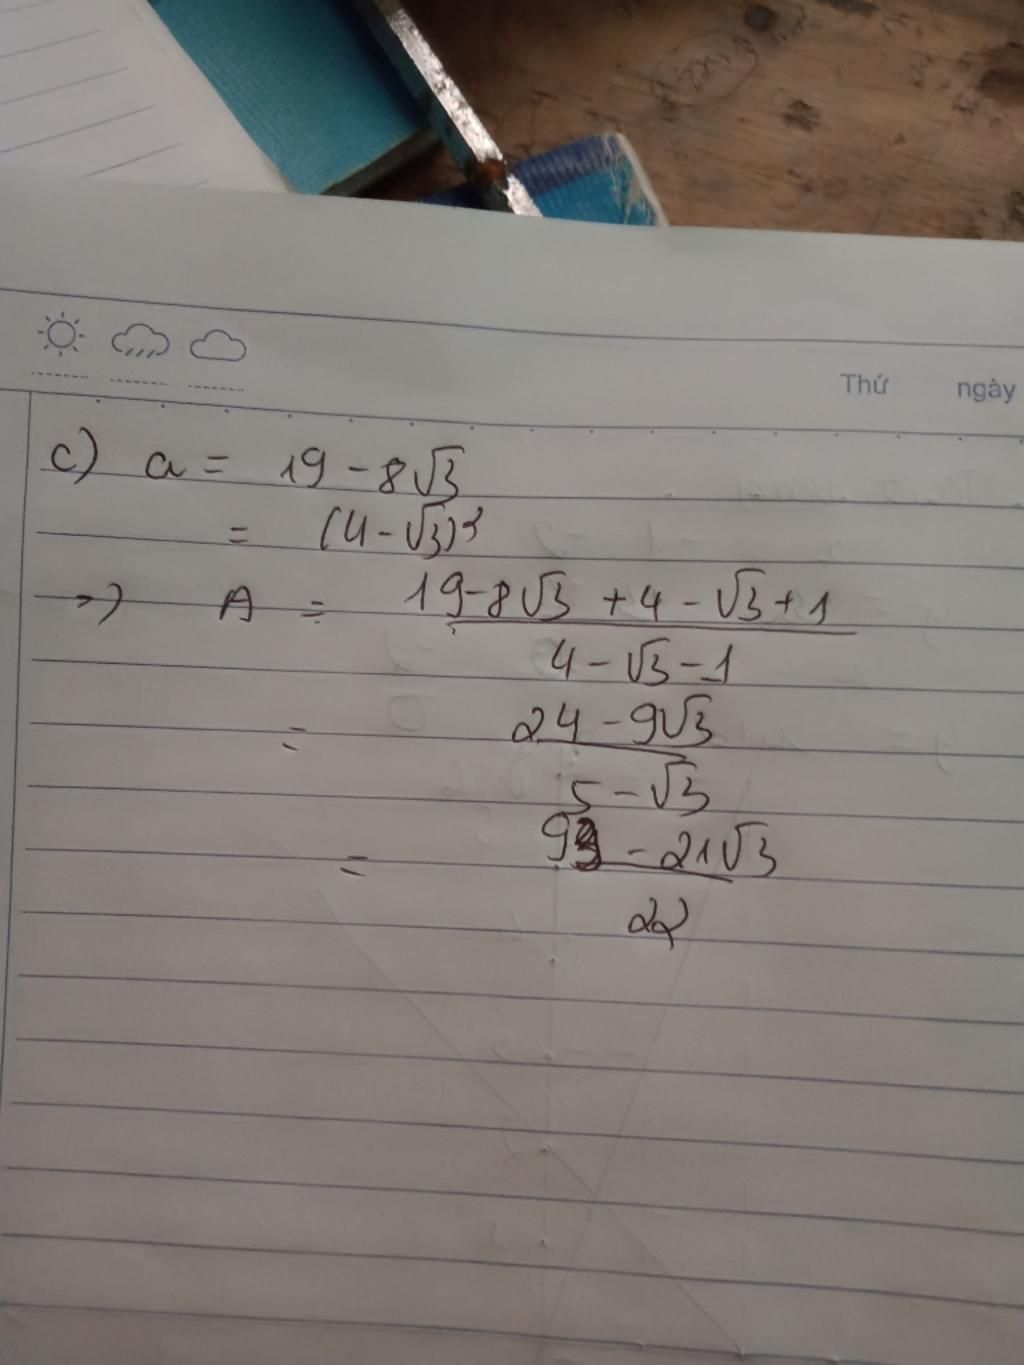 Thứ ngày
c) a = 19 - 8√3
= (4 - √3)²
=> A = \frac{19 - 8√3 + 4 - √3 + 1}{4 - √3 - 1}
= \frac{24 - 9√3}{5 - √3}
= \frac{93 - 21√3}{22}